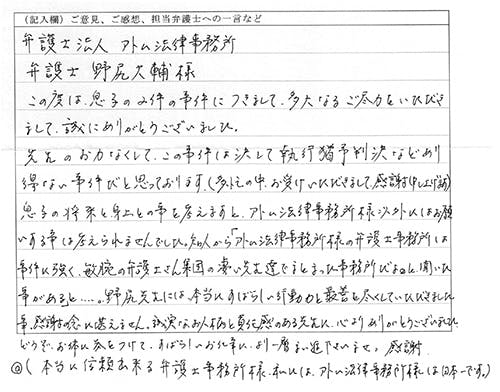 (記入欄) ご意見、ご感想、担当弁護士への一言など
弁護士法人 アトム法律事務所
弁護士 野尻大輔様
この度は、息子の4件の事件につきまして、多大なるご尽力をいただき
まして、誠にありがとうございました。
先生のお力なくして、この事件は決して執行猶予判決などあり
得ない事件だと思っております。(多忙の中、お受けいただきまして、感謝申し上げます)
息子の将来と身上の事を考えますと、アトム法律事務所様以外にはお願
いする事は考えられませんでした。知人から「アトム法律事務所様の弁護士事務所は
事件に強く、敏腕の弁護士さん集団の凄い先生達でまとまった事務所だよ。」と、聞いた
事があると…。野尻先生には、本当にすばらしい行動力と最善を尽くしていただきました
事、感謝の念に堪えません。誠実なお人柄と責任感のある先生に、心よりありがとうございました
どうぞ、お体に気をつけて、すばらしいお仕事に、より一層まい進下さいませ。感謝
◎(本当に信頼出来る弁護士事務所様、私には、アトム法律事務所様は日本一です。)